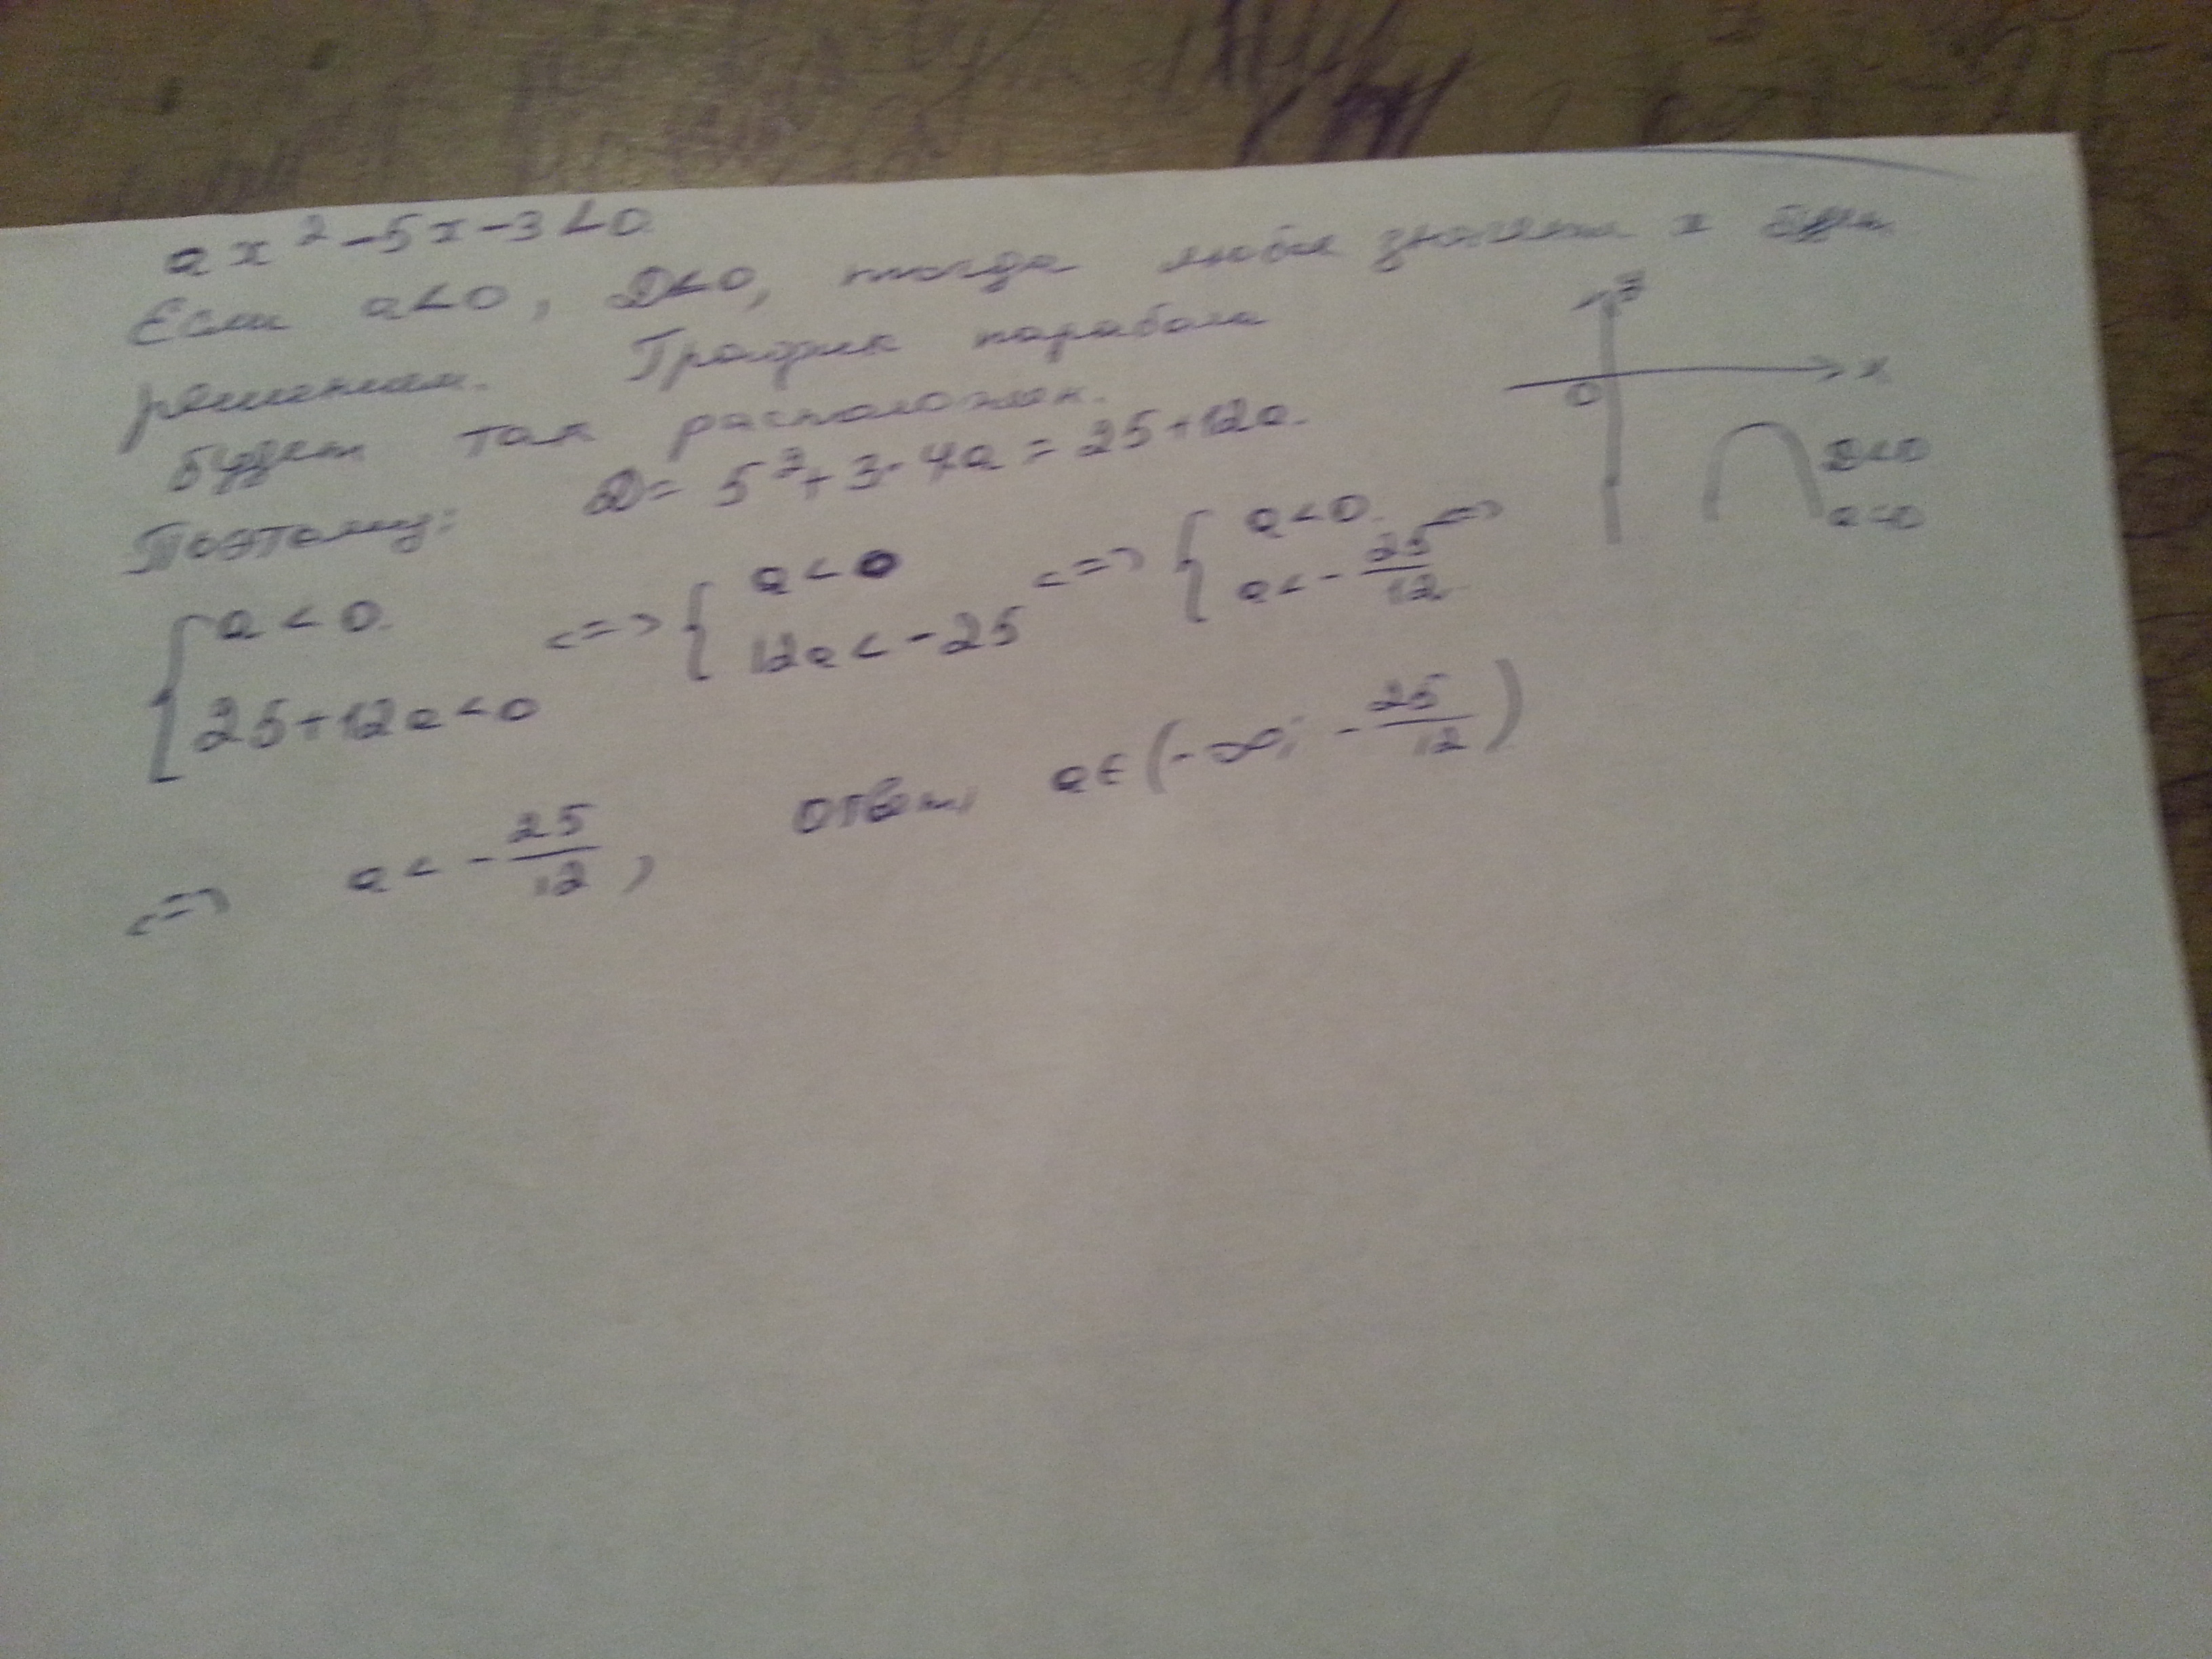 ax² - 5x - 3 < 0
Если a<0, D<0, тогда любое значение x будет
решением. График парабола
будет так расположен.
Поэтому: D = 5² + 3·4a = 25 + 12a.
{ a < 0. 25+12a<0 <=> { a < 0 12a < -25 <=> { a < 0. a < - 25/12 <=>
<=> a < - 25/12, Ответ, a ∈ (-∞; - 25/12)
0 x
D<0
a<0